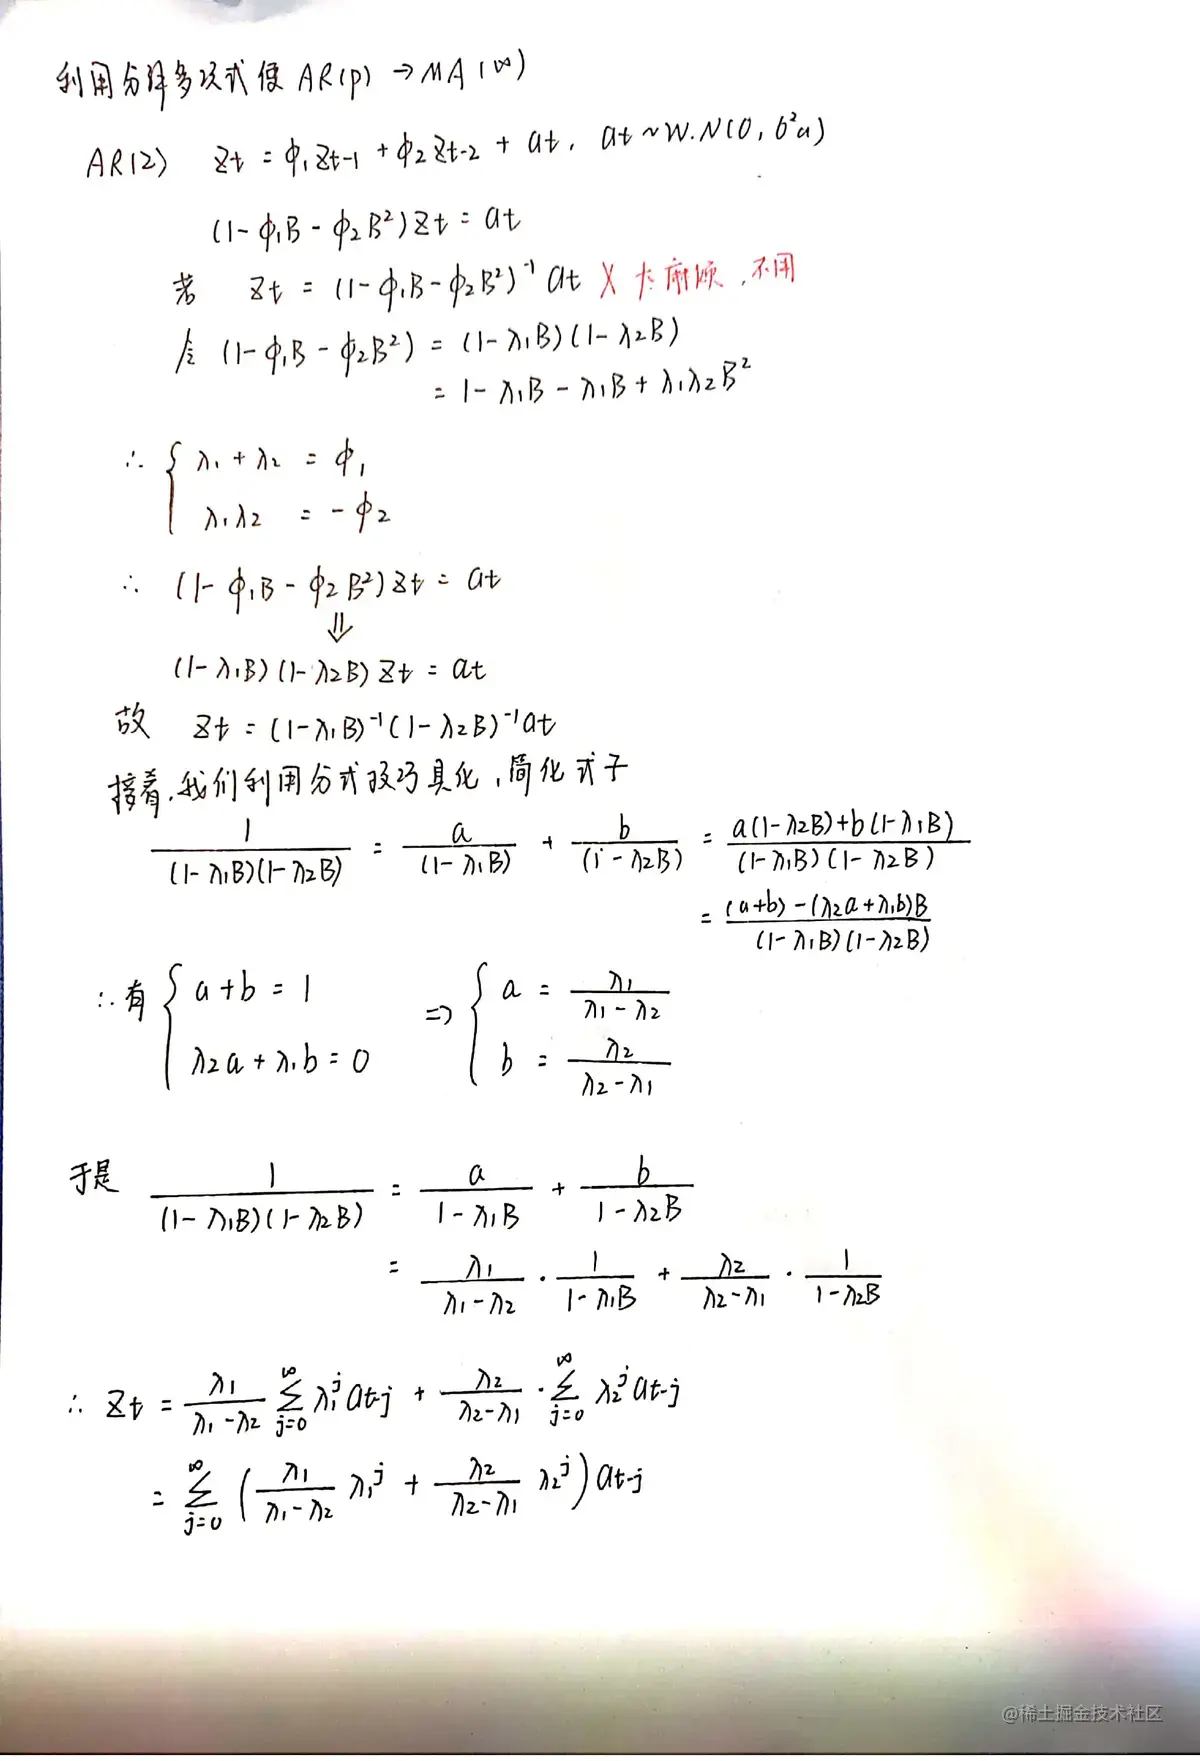 利用分解多项式使 AR(p) → MA(∞)
AR(2) Zt = ϕ1Zt-1 + ϕ2Zt-2 + at, at ~ W.N(0, б²a)
(1-ϕ1B - ϕ2B²)Zt = at
若 Zt = (1-ϕ1B-ϕ2B²)⁻¹ at X 太麻烦,不用
令 (1-ϕ1B - ϕ2B²) = (1-λ1B)(1-λ2B)
= 1 - λ1B - λ1B + λ1λ2B²
∴ { λ1 + λ2 = ϕ1
λ1λ2 = -ϕ2
∴ (1-ϕ1B - ϕ2B²)Zt = at
⇓
(1-λ1B)(1-λ2B)Zt = at
故 Zt = (1-λ1B)⁻¹(1-λ2B)⁻¹at
接着,我们利用分式技巧具化,简化式子
1/((1-λ1B)(1-λ2B)) = a/(1-λ1B) + b/(1-λ2B) = (a(1-λ2B)+b(1-λ1B))/((1-λ1B)(1-λ2B))
= ((a+b)-(λ2a+λ1b)B)/((1-λ1B)(1-λ2B))
∴有 { a+b = 1 ⇒ { a = λ1/(λ1-λ2)
λ2a+λ1b = 0 b = λ2/(λ2-λ1)
于是 1/((1-λ1B)(1-λ2B)) = a/(1-λ1B) + b/(1-λ2B)
= λ1/(λ1-λ2) · 1/(1-λ1B) + λ2/(λ2-λ1) · 1/(1-λ2B)
∴ Zt = λ1/(λ1-λ2) ∑_{j=0}^{∞} λ1^j at-j + λ2/(λ2-λ1) · ∑_{j=0}^{∞} λ2^j at-j
= ∑_{j=0}^{∞} (λ1/(λ1-λ2) λ1^j + λ2/(λ2-λ1) λ2^j) at-j
@稀土掘金技术社区